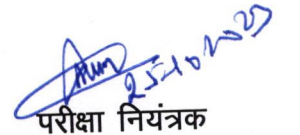 25-10-2023
परीक्षा नियंत्रक